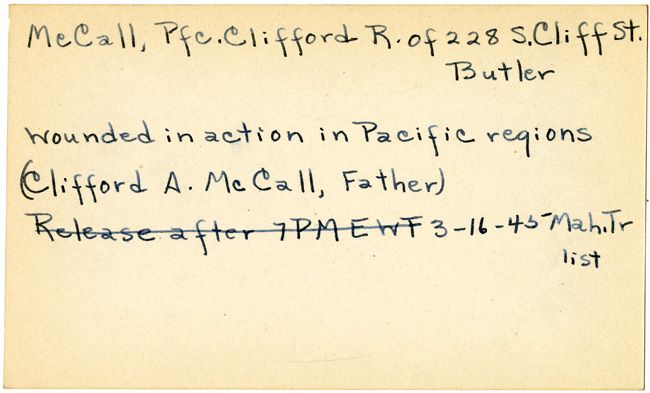 McCall, Pfc. Clifford R. of 228 S. Cliff St.
Butler
wounded in action in Pacific regions
(Clifford A. McCall, Father)
Release after 7PM EWT 3-16-45 Mah. Tr
list